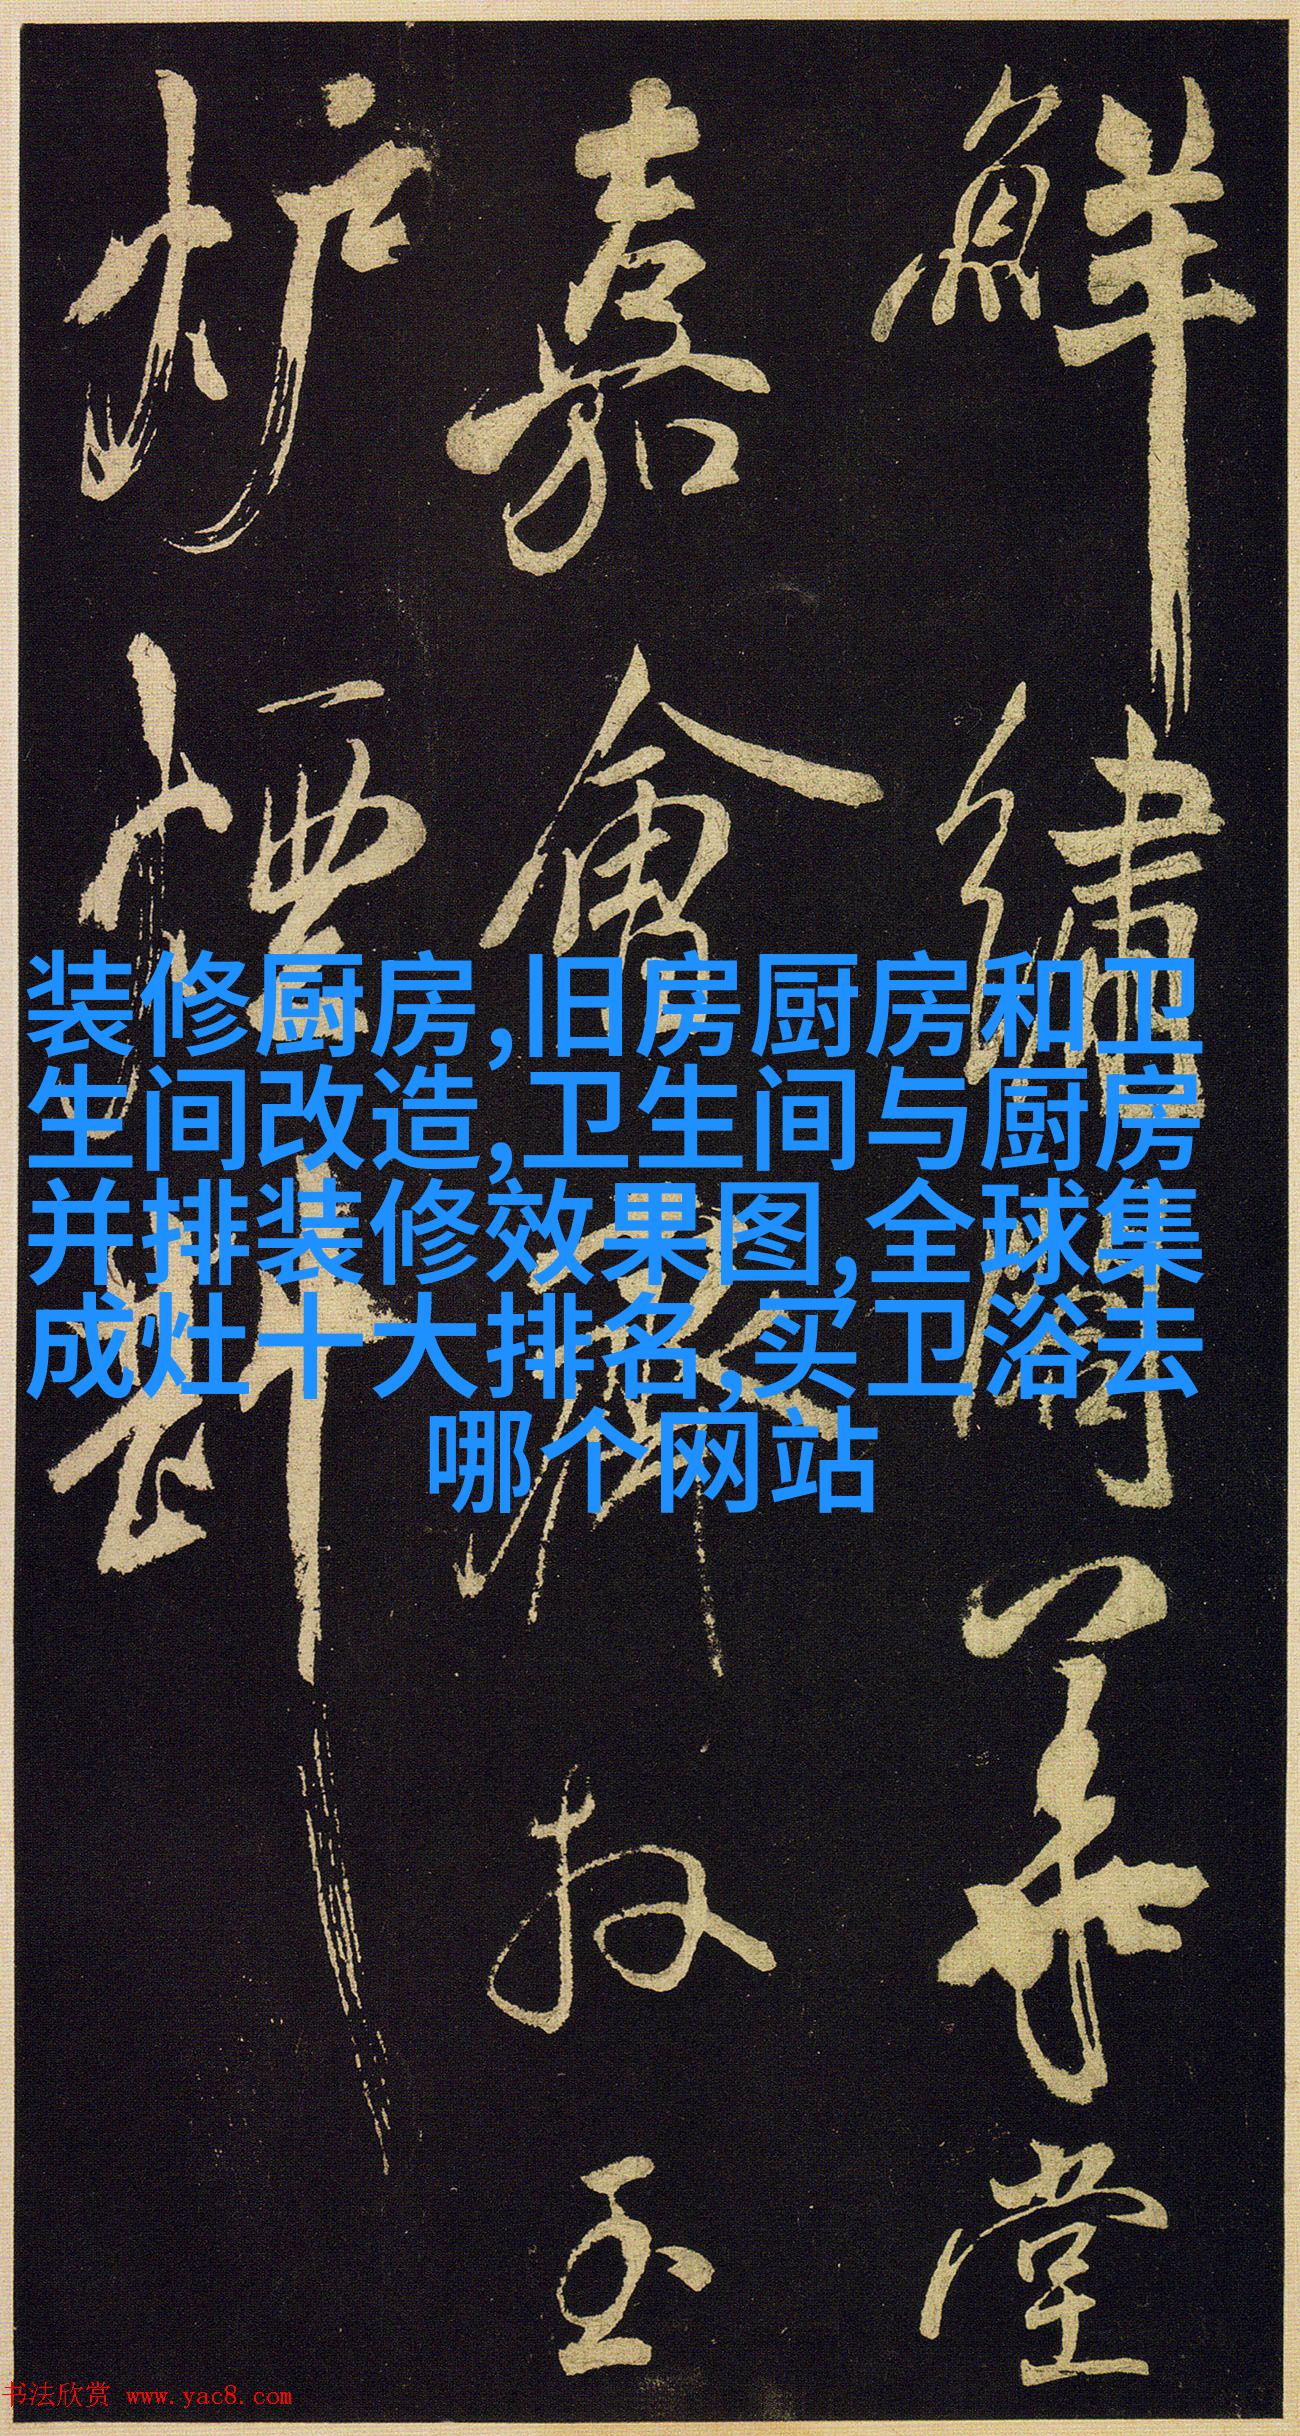 鮮繡華堂
嘉會玉
炉
装修厨房,旧房厨房和卫
生间改造,卫生间与厨房
并排装修效果图,全球集
成灶十大排名,买卫浴去
哪个网站
书法欣赏 www.yac8.com